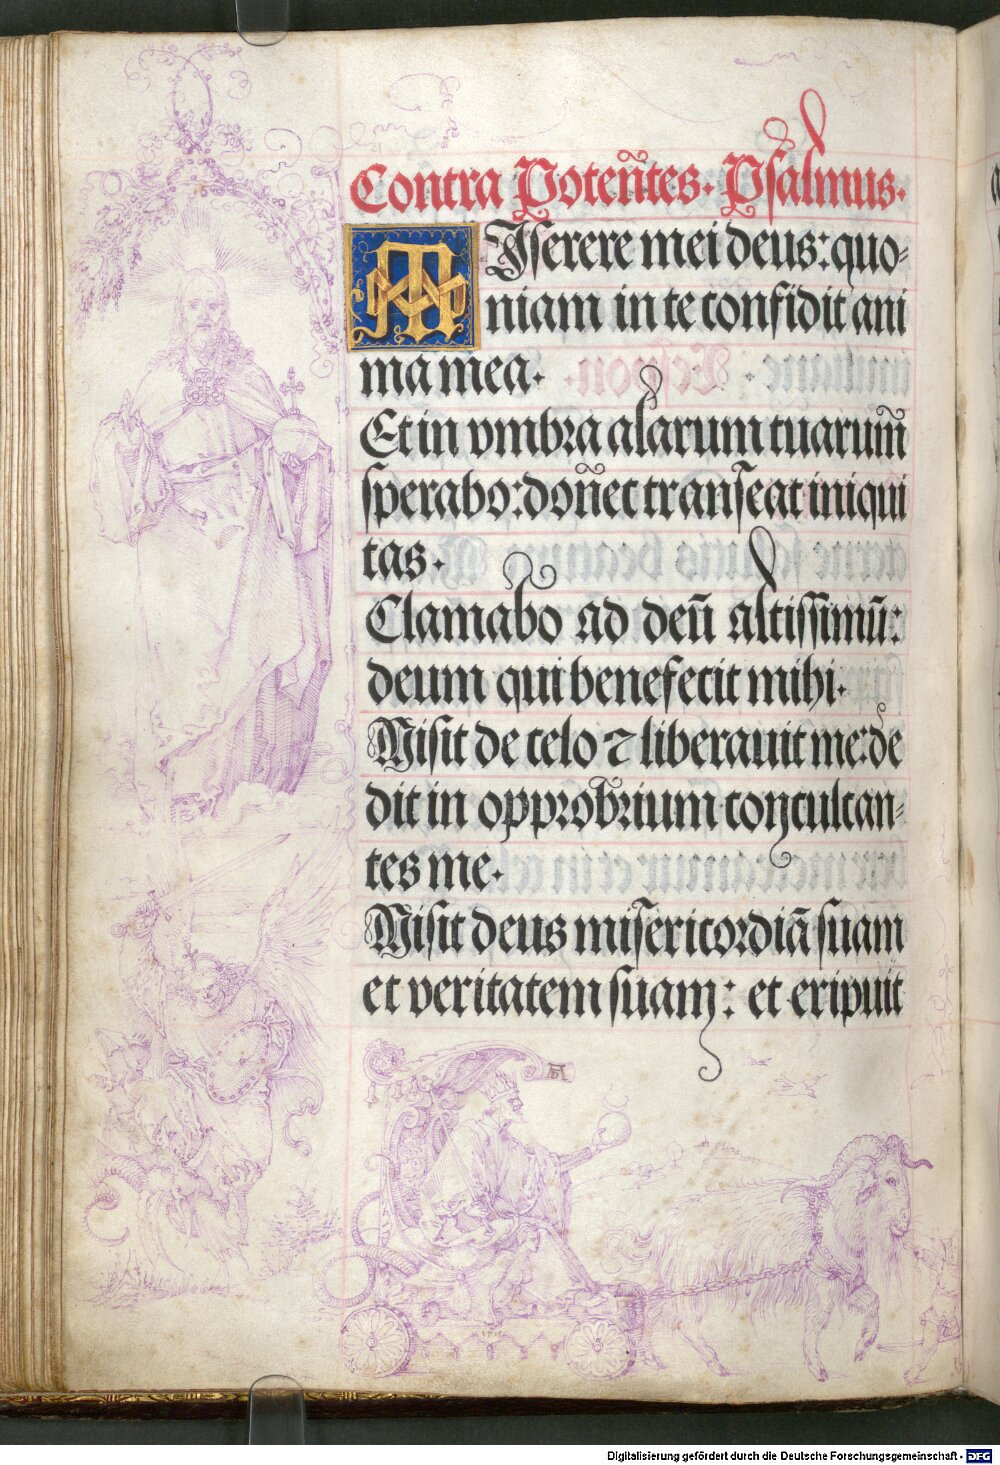 Contra Poteñtes. Psalmus.
MIserere mei deus: quo-
niam in te confidit ani
ma mea.
Et in vmbra alarum tuarum̄
sperabo: doñec transeat iniqui
tas.
Clamabo ad deū altissimū:
deum qui benefecit mihi.
Misit de celo ⁊ liberauit me: de
dit in opprobrium conculcan-
tes me.
Misit deus misericordiā suam
et veritatem suam: et eripuit
AD
Digitalisierung gefördert durch die Deutsche Forschungsgemeinschaft - DFG